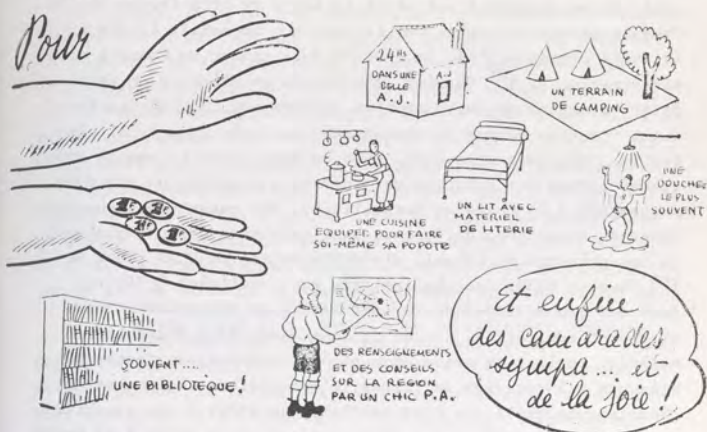 Pour
24 Hs
DANS UNE
BELLE
A.J.
A.J
UN TERRAIN
DE CAMPING
UNE CUISINE
EQUIPEE POUR FAIRE
SOI-MÊME SA POPOTE
UN LIT AVEC
MATERIEL
DE LITERIE
UNE
DOUCHE
LE PLUS
SOUVENT
SOUVENT....
UNE BIBLIOTEQUE!
DES RENSEIGNEMENTS
ET DES CONSEILS
SUR LA REGION
PAR UN CHIC P.A.
Et enfin
des camarades
sympa... et
de la joie!